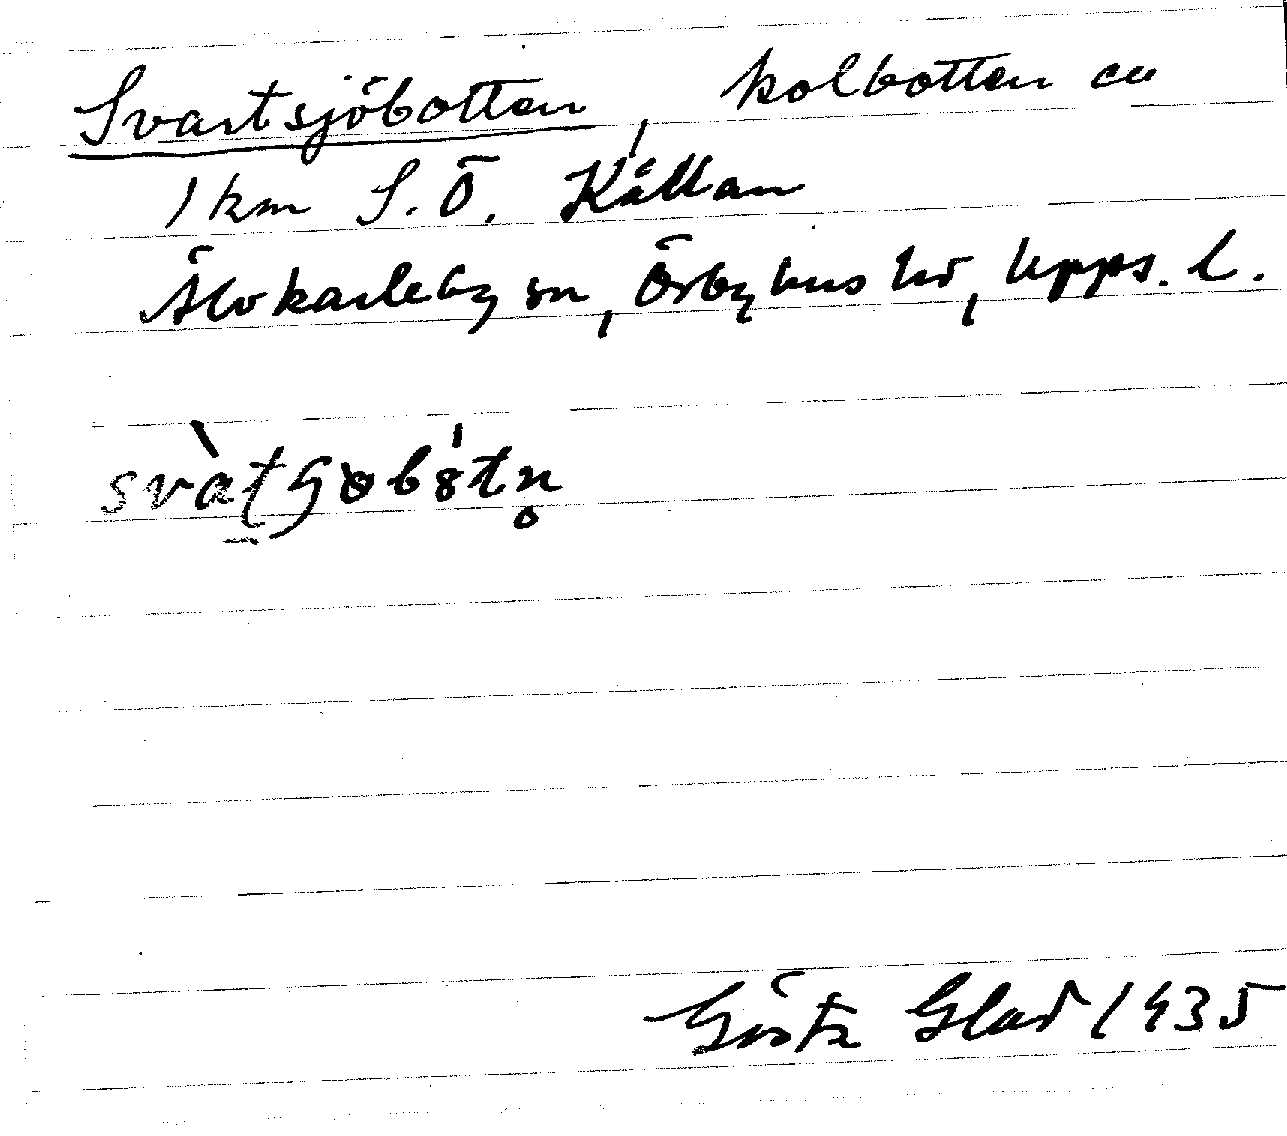 Svartsjöbotten, kolbotten ca
1 km S.Ö. Källan
Älvkarleby sn, Örbyhus hd, Upps. l.
Gösta Glad 1935